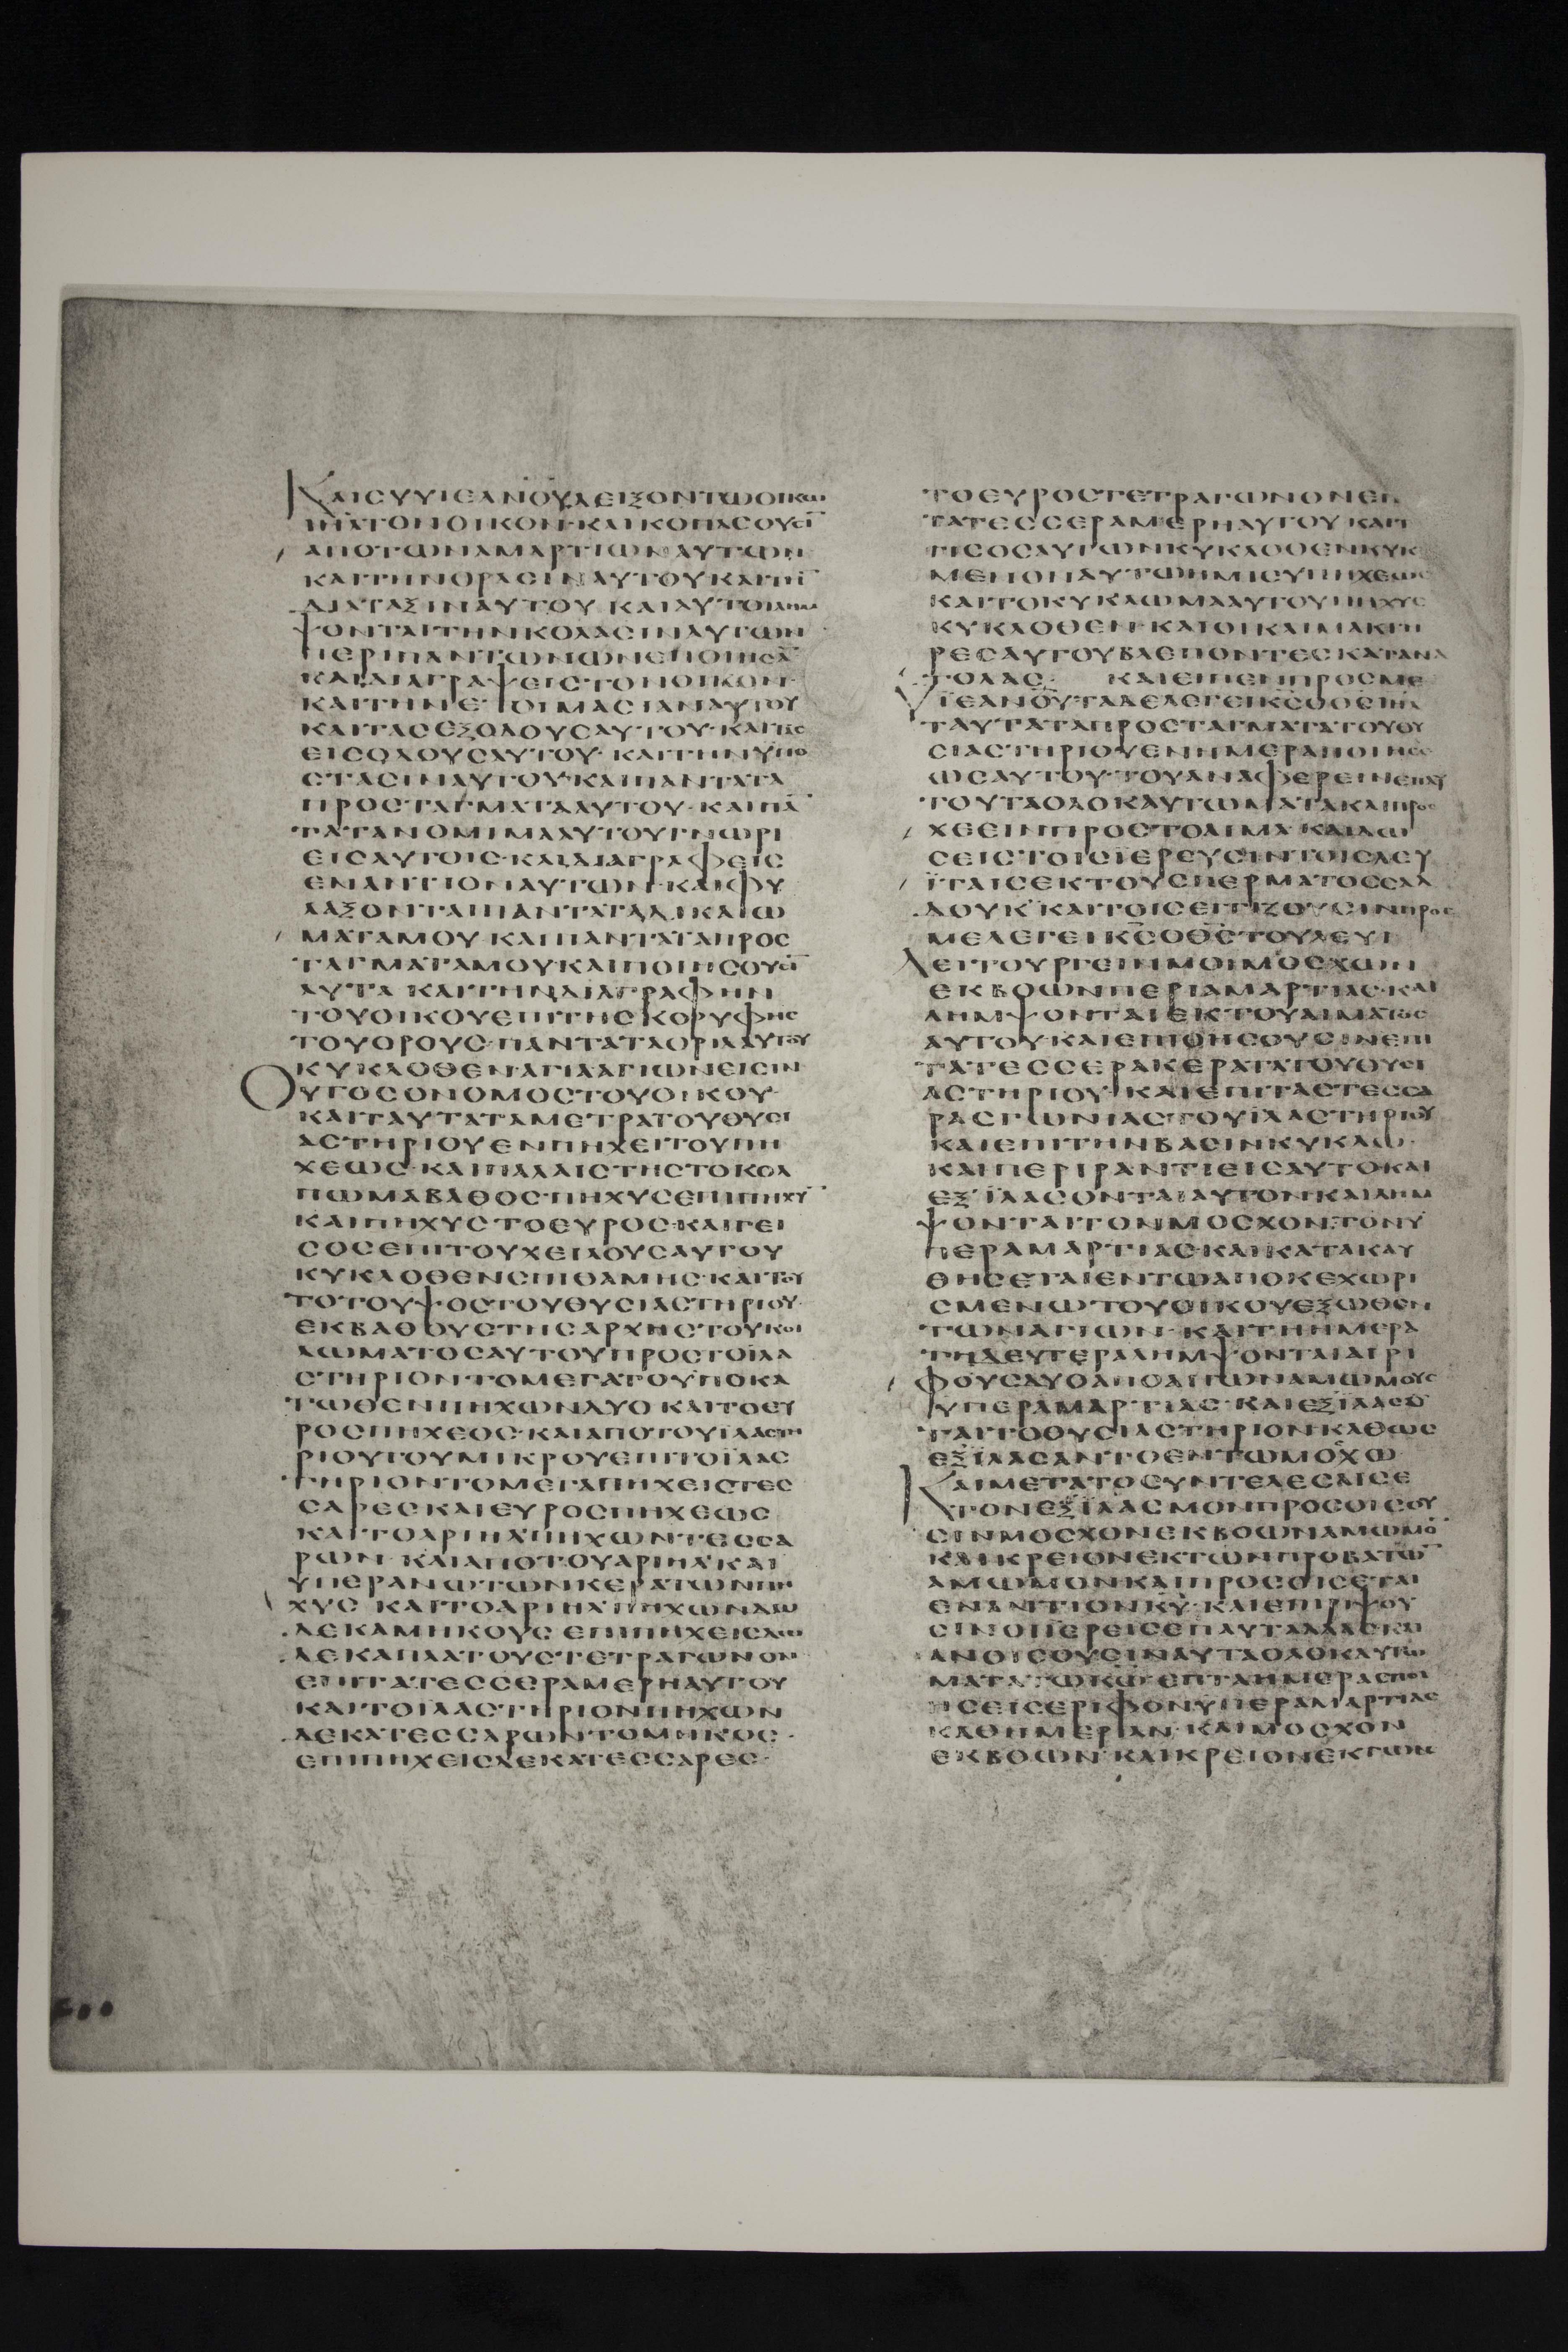 ΚΑΙΣΥΥΙΕΑΝΟΥΔΕΙΞΟΝΤΩΟΙΚΩ
ΙΗΛΤΟΝΟΙΚΟΝ·ΚΑΙΚΟΠΑΣΟΥΣΙ̅
ΑΠΟΤΩΝΑΜΑΡΤΙΩΝΑΥΤΩΝ
ΚΑΙΤΗΝΟΡΑΣΙΝΑΥΤΟΥΚΑΙΤΗ̅
ΔΙΑΤΑΞΙΝΑΥΤΟΥ ΚΑΙΑΥΤΟΙΛΗΜ
ΨΟΝΤΑΙΤΗΝΚΟΛΑΣΙΝΑΥΤΩΝ
ΠΕΡΙΠΑΝΤΩΝΩΝΕΠΟΙΗΣΑ̅
ΚΑΙΔΙΑΓΡΑΨΕΙΣΤΟΝΟΙΚΟΝ·
ΚΑΙΤΗΝΕΤΟΙΜΑΣΙΑΝΑΥΤΟΥ
ΚΑΙΤΑΣΕΞΟΔΟΥΣΑΥΤΟΥ·ΚΑΙΤΑΣ
ΕΙΣΟΔΟΥΣΑΥΤΟΥ· ΚΑΙΤΗΝΥΠΟ
ΣΤΑΣΙΝΑΥΤΟΥ·ΚΑΙΠΑΝΤΑΤΑ
ΠΡΟΣΤΑΓΜΑΤΑΑΥΤΟΥ·ΚΑΙΠΑ̅
ΤΑΤΑΝΟΜΙΜΑΑΥΤΟΥΓΝΩΡΙ
ΕΙΣΑΥΤΟΙΣ·ΚΑΙΔΙΑΓΡΑΦΕΙΣ
ΕΝΑΝΤΙΟΝΑΥΤΩΝ·ΚΑΙΦΥ
ΛΑΞΟΝΤΑΙΠΑΝΤΑΤΑΔΙΚΑΙΩ
ΜΑΤΑΜΟΥ ΚΑΙΠΑΝΤΑΤΑΠΡΟΣ
ΤΑΓΜΑΤΑΜΟΥΚΑΙΠΟΙΗΣΟΥΣΙ̅
ΑΥΤΑ ΚΑΙΤΗΝΔΙΑΓΡΑΦΗΝ
ΤΟΥΟΙΚΟΥΕΠΙΤΗΣΚΟΡΥΦΗΣ
ΤΟΥΟΡΟΥΣ·ΠΑΝΤΑΤΑΟΡΙΑΑΥΤΟΥ
ΚΥΚΛΟΘΕΝΑΓΙΑΑΓΙΩΝΕΙΣΙΝ
ΟΥΤΟΣΟΝΟΜΟΣΤΟΥΟΙΚΟΥ·
ΚΑΙΤΑΥΤΑΤΑΜΕΤΡΑΤΟΥΘΥΣΙ
ΑΣΤΗΡΙΟΥΕΝΠΗΧΕΙΤΟΥΠΗ
ΧΕΩΣ·ΚΑΙΠΑΛΑΙΣΤΗΣΤΟΚΟΛ
ΠΩΜΑΒΑΘΟΣΠΗΧΥΣΕΠΙΠΗΧΥ̅
ΚΑΙΠΗΧΥΣΤΟΕΥΡΟΣ·ΚΑΙΓΕΙ
ΣΟΣΕΠΙΤΟΥΧΕΙΛΟΥΣΑΥΤΟΥ
ΚΥΚΛΟΘΕΝΣΠΙΘΑΜΗΣ·ΚΑΙΤΟΥ
ΤΟΤΟΥΨΟΣΤΟΥΘΥΣΙΑΣΤΗΡΙΟΥ·
ΕΚΒΑΘΟΥΣΤΗΣΑΡΧΗΣΤΟΥΚΟΙ
ΛΩΜΑΤΟΣΑΥΤΟΥΠΡΟΣΤΟΪΛΑ
ΣΤΗΡΙΟΝΤΟΜΕΓΑΤΟΥΠΟΚΑ
ΤΩΘΕΝΠΗΧΩΝΔΥΟ ΚΑΙΤΟΕΥ
ΡΟΣΠΗΧΕΟΣ·ΚΑΙΑΠΟΤΟΥΙΛΑΣΤΗ
ΡΙΟΥΤΟΥΜΙΚΡΟΥΕΠΙΤΟΪΛΑΣ
ΤΗΡΙΟΝΤΟΜΕΓΑΠΗΧΕΙΣΤΕΣ
ΣΑΡΕΣΚΑΙΕΥΡΟΣΠΗΧΕΩΣ
ΚΑΙΤΟΑΡΙΗΛΠΗΧΩΝΤΕΣΣΑ
ΡΩΝ·ΚΑΙΑΠΟΤΟΥΑΡΙΗΛ·ΚΑΙ
ΥΠΕΡΑΝΩΤΩΝΚΕΡΑΤΩΝΠΗ
ΧΥΣ ΚΑΙΤΟΑΡΙΗΛΠΗΧΩΝΔΩ
ΔΕΚΑΜΗΚΟΥΣ ΕΠΙΠΗΧΕΙΣΔΩ
ΔΕΚΑΠΛΑΤΟΥΣΤΕΤΡΑΓΩΝΟΝ
ΕΠΙΤΑΤΕΣΣΕΡΑΜΕΡΗΑΥΤΟΥ
ΚΑΙΤΟΙΛΑΣΤΗΡΙΟΝΠΗΧΩΝ
ΔΕΚΑΤΕΣΣΑΡΩΝΤΟΜΗΚΟΣ·
ΕΠΙΠΗΧΕΙΣΔΕΚΑΤΕΣΣΑΡΕΣ·
ΤΟΕΥΡΟΣΤΕΤΡΑΓΩΝΟΝΕΠΙ
ΤΑΤΕΣΣΕΡΑΜΕΡΗΑΥΤΟΥ ΚΑΙΤ
ΓΙΣΟΣΑΥΤΩΝΚΥΚΛΟΘΕΝΚΥΚ
ΜΕΝΟΝΑΥΤΩΗΜΙΣΥΠΗΧΕΩΣ
ΚΑΙΤΟΚΥΚΛΩΜΑΑΥΤΟΥΠΗΧΥΣ
ΚΥΚΛΟΘΕΝ·ΚΑΙΟΙΚΛΙΜΑΚΤΗ
ΡΕΣΑΥΤΟΥΒΛΕΠΟΝΤΕΣΚΑΤΑΝΑ
ΤΟΛΑΣ· ΚΑΙΕΙΠΕΝΠΡΟΣΜΕ
ΥΪΕΑΝΟΥΤΑΔΕΛΕΓΕΙΚΣΟΘΣΙΗΛ
ΤΑΥΤΑΤΑΠΡΟΣΤΑΓΜΑΤΑΤΟΥΘΥ
ΣΙΑΣΤΗΡΙΟΥΕΝΗΜΕΡΑΠΟΙΗΣΕ
ΩΣΑΥΤΟΥ·ΤΟΥΑΝΑΦΕΡΕΙΝΕΠΑΥ
ΤΟΥΤΑΟΛΟΚΑΥΤΩΜΑΤΑΚΑΙΠΡΟΣ
ΧΕΕΙΝΠΡΟΣΤΟΑΙΜΑ·ΚΑΙΔΩ
ΣΕΙΣΤΟΙΣΙΕΡΕΥΣΙΝΤΟΙΣΛΕΥ
ΪΤΑΙΣΕΚΤΟΥΣΠΕΡΜΑΤΟΣΣΑΔ
ΔΟΥΚ·ΚΑΙΤΟΙΣΕΓΓΙΖΟΥΣΙΝΠΡΟΣ
ΜΕΛΕΓΕΙΚΣΟΘΣΤΟΥΛΕΥΙ
ΛΕΙΤΟΥΡΓΕΙΝΜΟΙΜΟΣΧΩΝ
ΕΚΒΟΩΝΠΕΡΙΑΜΑΡΤΙΑΣ·ΚΑΙ
ΛΗΜΨΟΝΤΑΙΕΚΤΟΥΑΙΜΑΤΟΣ
ΑΥΤΟΥ·ΚΑΙΕΠΙΘΗΣΟΥΣΙΝΕΠΙ
ΤΑΤΕΣΣΕΡΑΚΕΡΑΤΑΤΟΥΘΥΣΙ
ΑΣΤΗΡΙΟΥ·ΚΑΙΕΠΙΤΑΣΤΕΣΣΑ
ΡΑΣΓΩΝΙΑΣΤΟΥΪΛΑΣΤΗΡΙΟΥ
ΚΑΙΕΠΙΤΗΝΒΑΣΙΝΚΥΚΛΩ·
ΚΑΙΠΕΡΙΡΑΝΤΙΕΙΣΑΥΤΟΚΑΙ
ΕΞΪΛΑΣΟΝΤΑΙΑΥΤΟΝΚΑΙΛΗΜ
ΨΟΝΤΑΙΤΟΝΜΟΣΧΟΝΤΟΝΥ
ΠΕΡΑΜΑΡΤΙΑΣ·ΚΑΙΚΑΤΑΚΑΥ
ΘΗΣΕΤΑΙΕΝΤΩΑΠΟΚΕΧΩΡΙ
ΣΜΕΝΩΤΟΥΟΙΚΟΥΕΞΩΘΕΝ
ΤΩΝΑΓΙΩΝ·ΚΑΙΤΗΗΜΕΡΑ
ΤΗΔΕΥΤΕΡΑΛΗΜΨΟΝΤΑΙΑΙΡΙ
ΦΟΥΣΔΥΟΑΠΟΑΙΓΩΝΑΜΩΜΟΥΣ
ΥΠΕΡΑΜΑΡΤΙΑΣ·ΚΑΙΕΞΪΛΑΣΟ̅
ΤΑΙΤΟΘΥΣΙΑΣΤΗΡΙΟΝΚΑΘΩΣ
ΕΞΪΛΑΣΑΝΤΟΕΝΤΩΜΟΣΧΩ
ΚΑΙΜΕΤΑΤΟΣΥΝΤΕΛΕΣΑΙΣΕ
ΤΟΝΕΞΪΛΑΣΜΟΝΠΡΟΣΟΙΣΟΥ
ΣΙΝΜΟΣΧΟΝΕΚΒΟΩΝΑΜΩΜΟ̅
ΚΑΙΚΡΕΙΟΝΕΚΤΩΝΠΡΟΒΑΤΩ̅
ΑΜΩΜΟΝΚΑΙΠΡΟΣΟΙΣΕΤΑΙ
ΕΝΑΝΤΙΟΝΚΥ·ΚΑΙΕΠΙΡΙΨΟΥ
ΣΙΝΟΙΙΕΡΕΙΣΕΠΑΥΤΑΑΛΑΣΚΑΙ
ΑΝΟΙΣΟΥΣΙΝΑΥΤΑΟΛΟΚΑΥΤΩ
ΜΑΤΑΤΩΚΩ·ΕΠΤΑΗΜΕΡΑΣΠΟΙ
ΗΣΕΙΣΕΡΙΦΟΝΥΠΕΡΑΜΑΡΤΙΑΣ
ΚΑΘΗΜΕΡΙΑΝ·ΚΑΙΜΟΣΧΟΝ
ΕΚΒΟΩΝ·ΚΑΙΚΡΕΙΟΝΕΚΤΩΝ